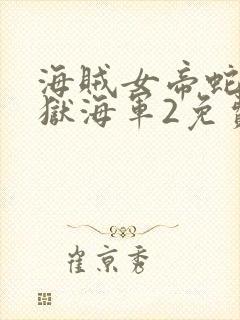 海贼女帝蛇
獄海軍2免費
崔京秀